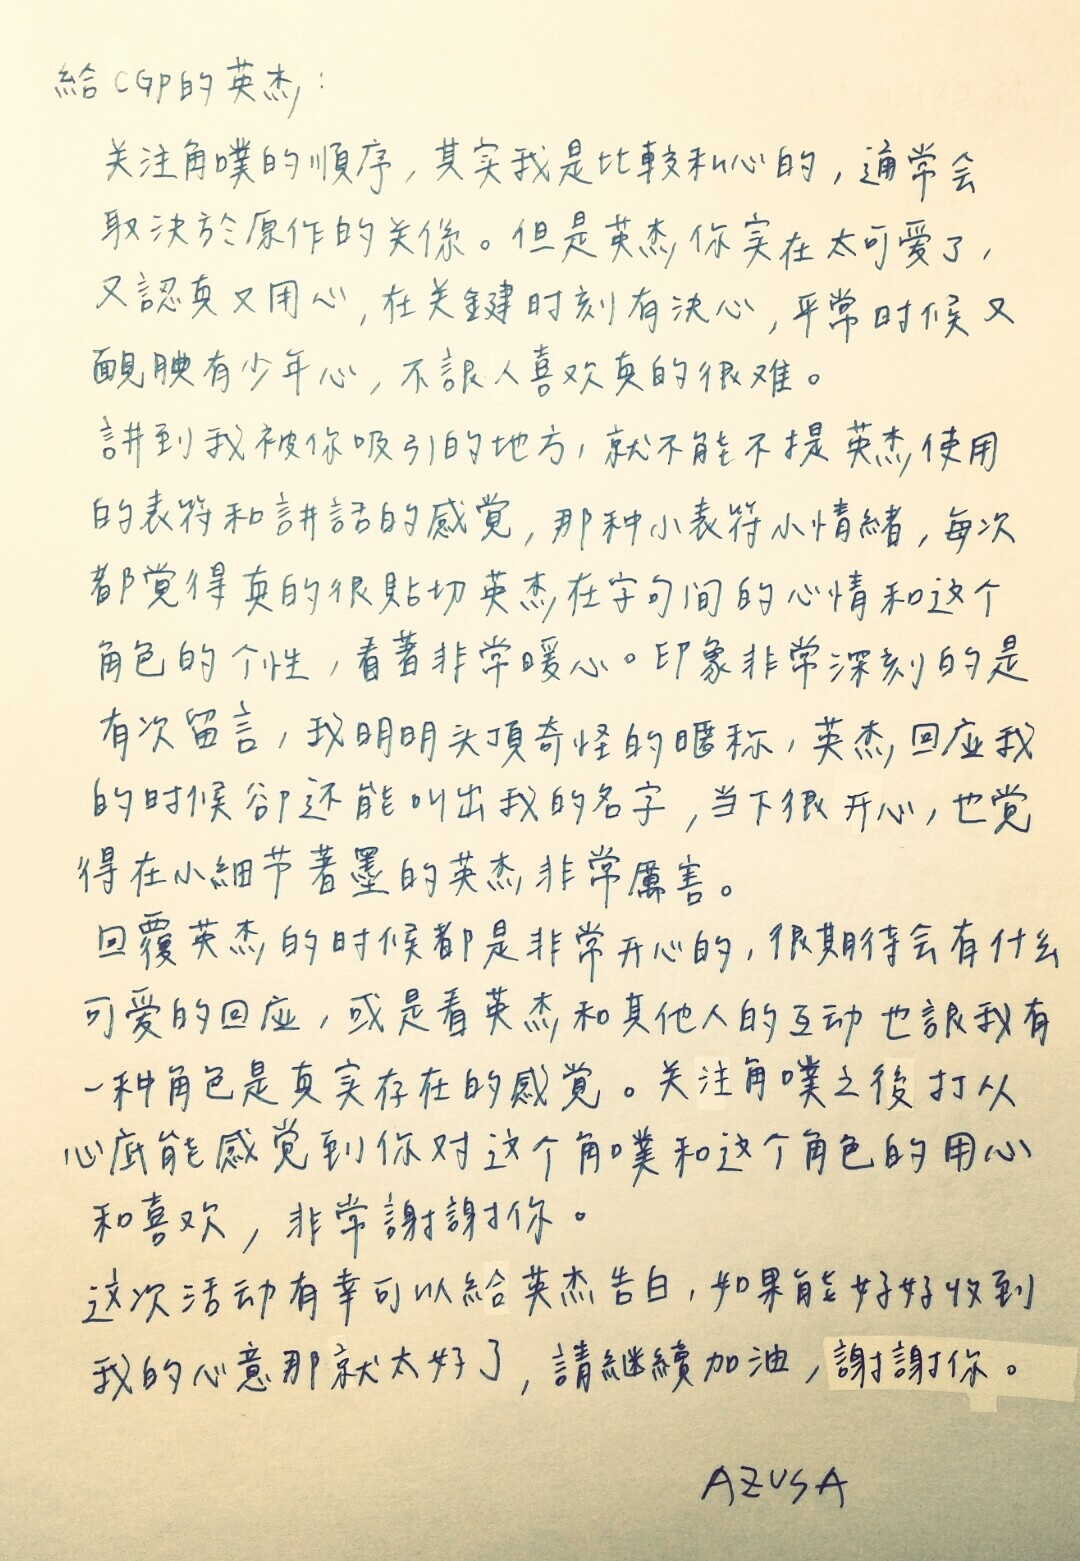 給CGP的英杰：
关注角噗的順序，其实我是比較私心的，通常会
取決於原作的关係。但是英杰你实在太可爱了，
又認真又用心，在关鍵时刻有決心，平常时候又
靦腆有少年心，不讓人喜欢真的很难。
講到我被你吸引的地方，就不能不提英杰使用
的表符和講話的感覚，那种小表符小情緒，每次
都覚得真的很貼切英杰在字句间的心情和这个
角色的个性，看著非常暖心。印象非常深刻的是
有次留言，我明明头頂奇怪的暱称，英杰回应我
的时候卻还能叫出我的名字，当下很开心，也覚
得在小細节著墨的英杰非常厲害。
回覆英杰的时候都是非常开心的，很期待会有什么
可爱的回应，或是看英杰和其他人的互动也讓我有
一种角色是真实存在的感覚。关注角噗之後打从
心底能感覚到你对这个角噗和这个角色的用心
和喜欢，非常謝謝你。
这次活动有幸可以給英杰告白，如果能好好收到
我的心意那就太好了，請継續加油，謝謝你。
AZUSA